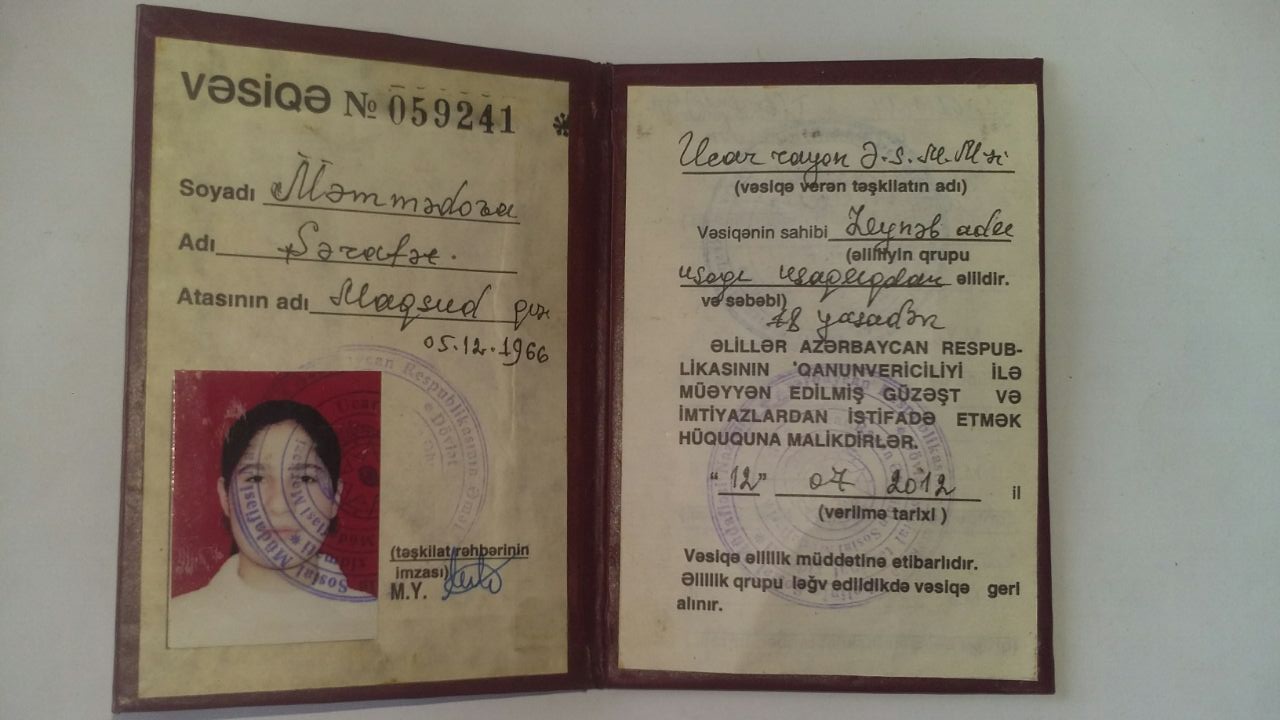 VƏSİQƏ № 059241
Soyadı Məmmədova
Adı Şərafət
Atasının adı Maqsud qızı
05.12.1966
(təşkilat rəhbərinin
imzası)
M.Y.
Ucar rayon Ə.S.M.M-zi
(vəsiqə verən təşkilatın adı)
Vəsiqənin sahibi Zeynəb adlı
(əlilliyin qrupu
uşağı uşaqlıqdan əlildir.
və səbəbi)
18 yaşadən
ƏLİLLƏR AZƏRBAYCAN RESPUB-
LİKASININ QANUNVERİCİLİYİ İLƏ
MÜƏYYƏN EDİLMİŞ GÜZƏŞT VƏ
İMTİYAZLARDAN İSTİFADƏ ETMƏK
HÜQUQUNA MALİKDİRLƏR.
"12" 07 2012 il
(verilmə tarixi)
Vəsiqə əlillik müddətinə etibarlıdır.
Əlillik qrupu ləğv edildikdə vəsiqə geri
alınır.